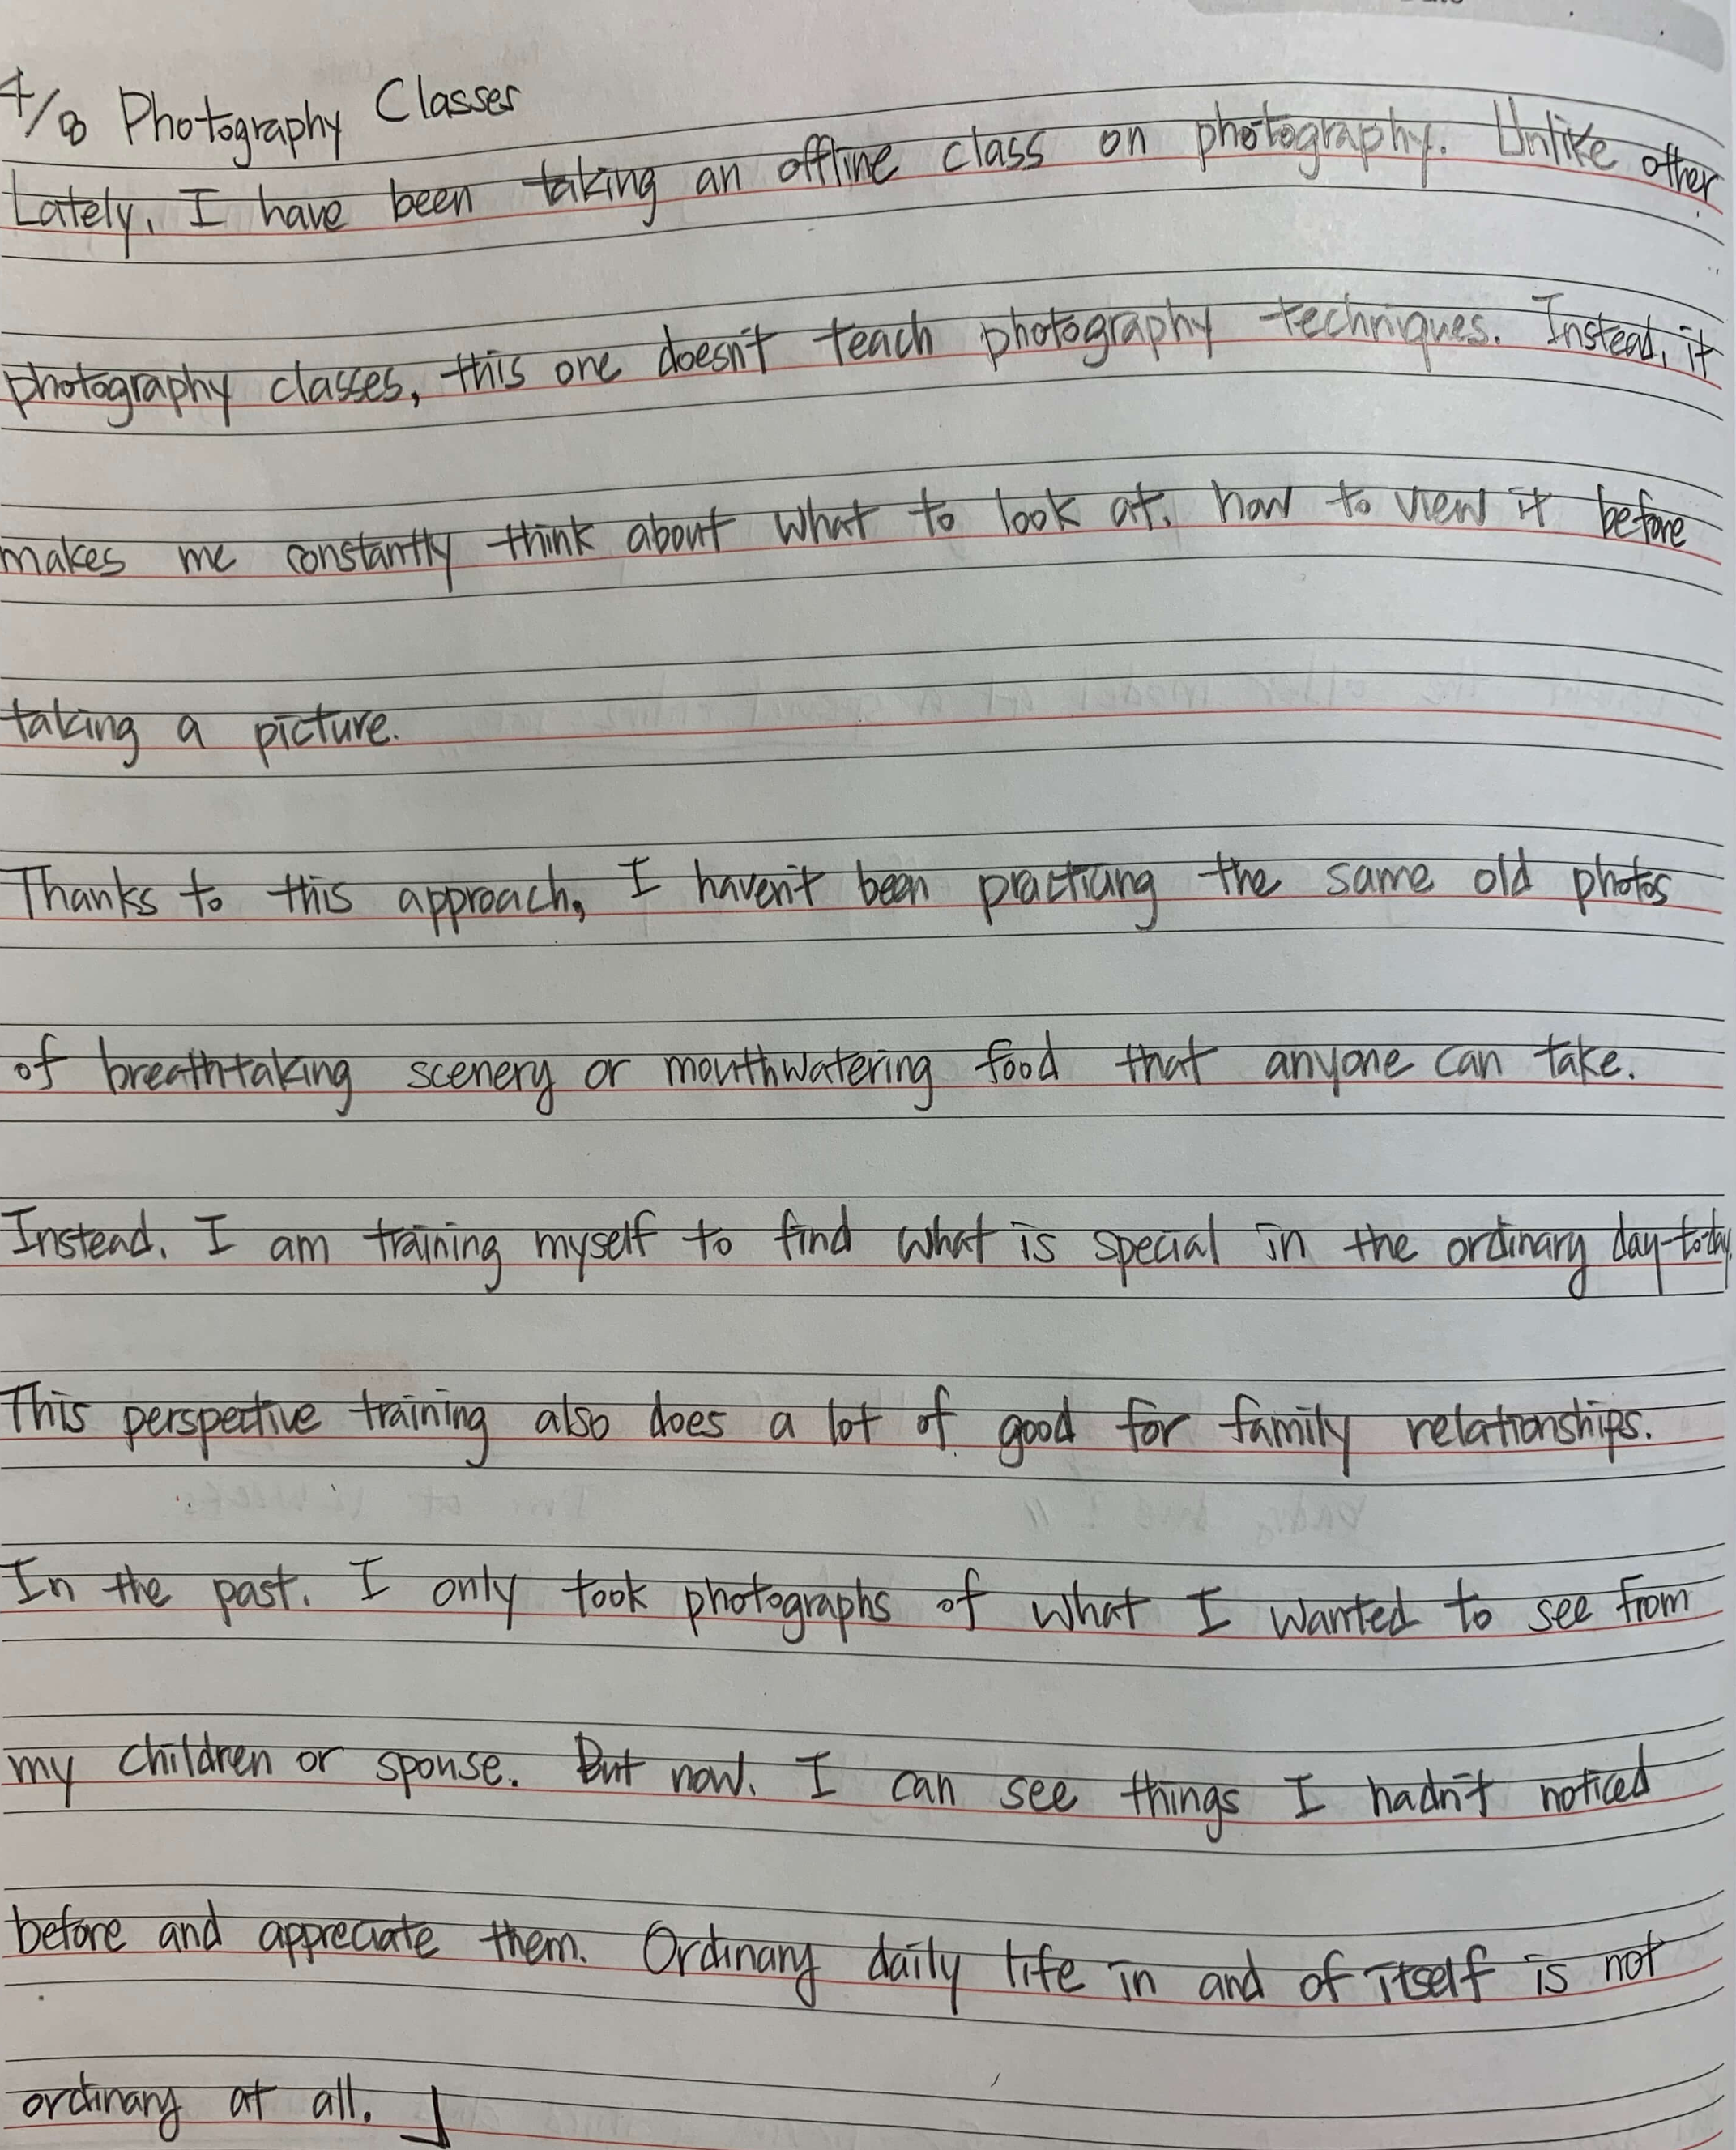 4/8 Photography Classes
Lately, I have been taking an offline class on photography. Unlike other
photography classes, this one doesn't teach photography techniques. Instead, it
makes me constantly think about what to look at, how to view it before
taking a picture.
Thanks to this approach, I haven't been practicing the same old photos
of breathtaking scenery or mouthwatering food that anyone can take.
Instead, I am training myself to find what is special in the ordinary day-to-day.
This perspective training also does a lot of good for family relationships.
In the past, I only took photographs of what I wanted to see from
my children or spouse. But now, I can see things I hadn't noticed
before and appreciate them. Ordinary daily life in and of itself is not
ordinary at all.